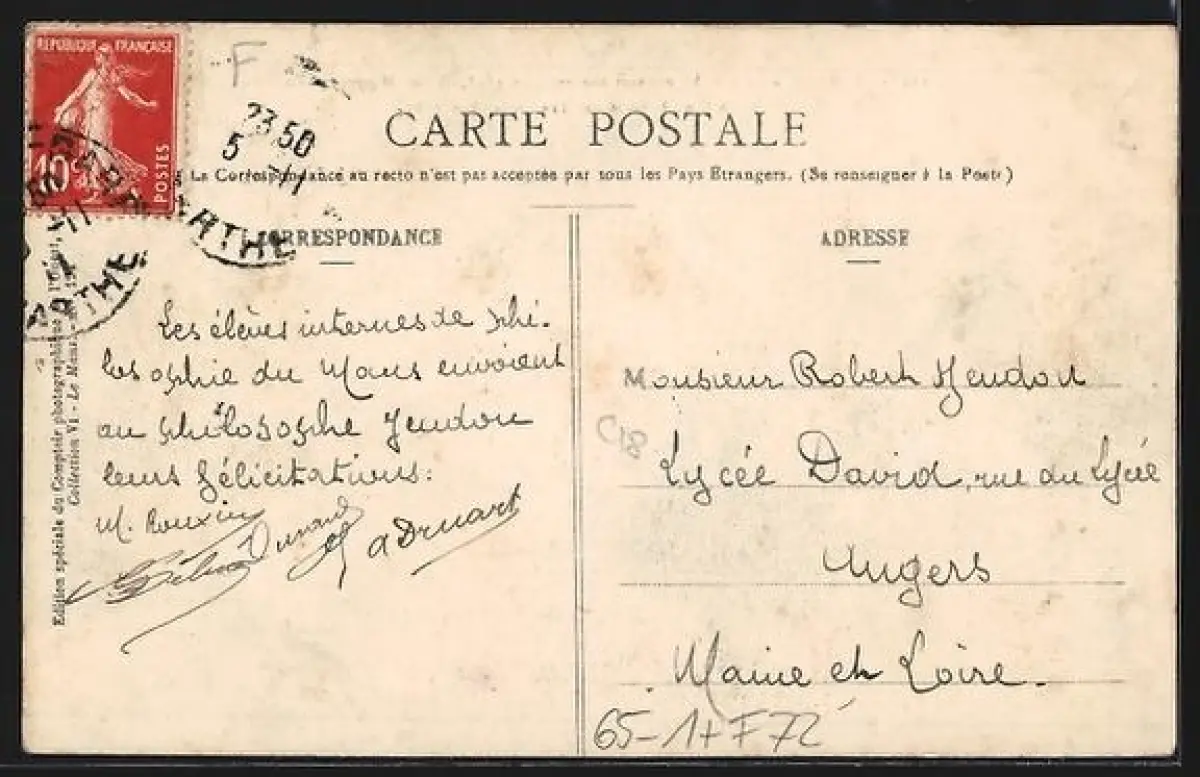 REPUBLIQUE FRANÇAISE
10c
POSTES
F
23 50
5 -11
SARTHE
CARTE POSTALE
La Correspondance au recto n'est pas acceptée par tous les Pays Etrangers. (Se renseigner à la Poste)
CORRESPONDANCE
Les élèves internes de phi-
losophie du Mans envoient
au philosophe Jeudon
leurs félicitations:
M. Rouxin
Durand
ADRESSE
Monsieur Robert Jeudon
Lycée David, rue du Lycée
Angers
Maine et Loire.
C18
65-1+ F72
Edition spéciale du Comptoir photographique de l'Ouest,
Collection VI - Le Mans.